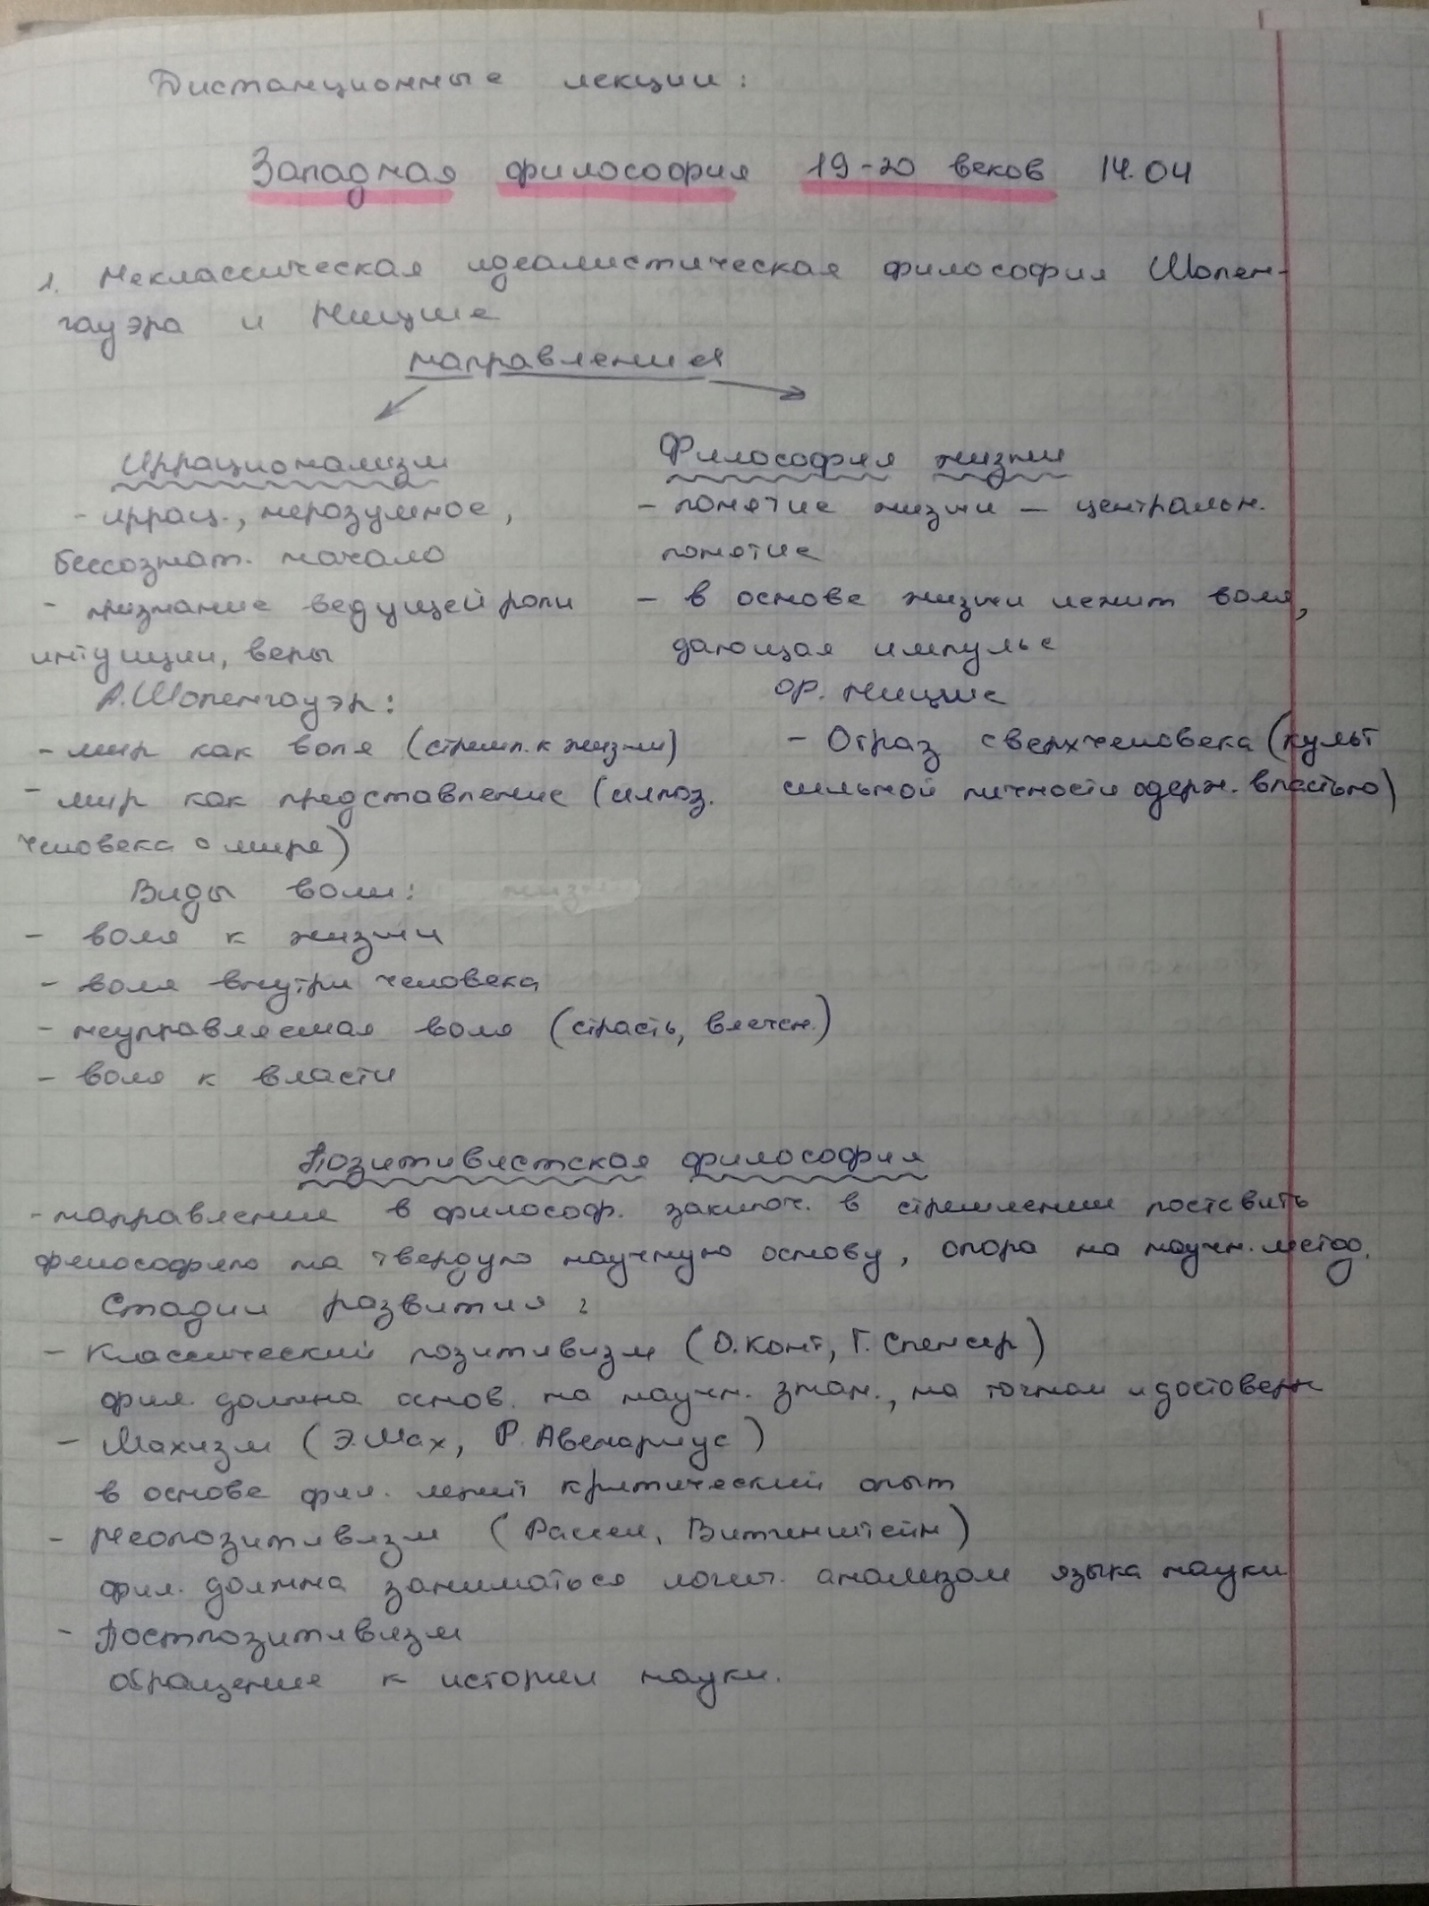 Дистанционные лекции:
Западная философия 19-20 веков 14.04
1. Неклассическая идеалистическая философия Шопен-
гауэра и Ницше
направления
Иррационализм
- иррац., неразумное,
бессознат. начало
- признание ведущей роли
интуиции, веры
А. Шопенгауэр:
- мир как воля (стремл. к жизни)
- мир как представление (иллюз.
человека о мире)
Виды воли:
- воля к жизни
- воля внутри человека
- неуправляемая воля (страсть, влечен.)
- воля к власти
Философия жизни
- понятие жизни - центральн.
понятие
- в основе жизни лежит воля,
дающая импульс
Фр. Ницше
- Образ сверхчеловека (культ
сильной личности одерж. властью)
Позитивистская философия
- направление в философ. заключ. в стремлении поставить
философию на твердую научную основу, опора на научн. метод.
Стадии развития:
- Классический позитивизм (О. Конт, Г. Спенсер)
фил. должна основ. на научн. знан., на точном и достоверн
- Махизм (Э. Мах, Р. Авенариус)
в основе фил. лежит критический опыт
- Неопозитивизм (Рассел, Витгенштейн)
фил. должна заниматься логич. анализом языка науки
- Постпозитивизм
обращение к истории науки.